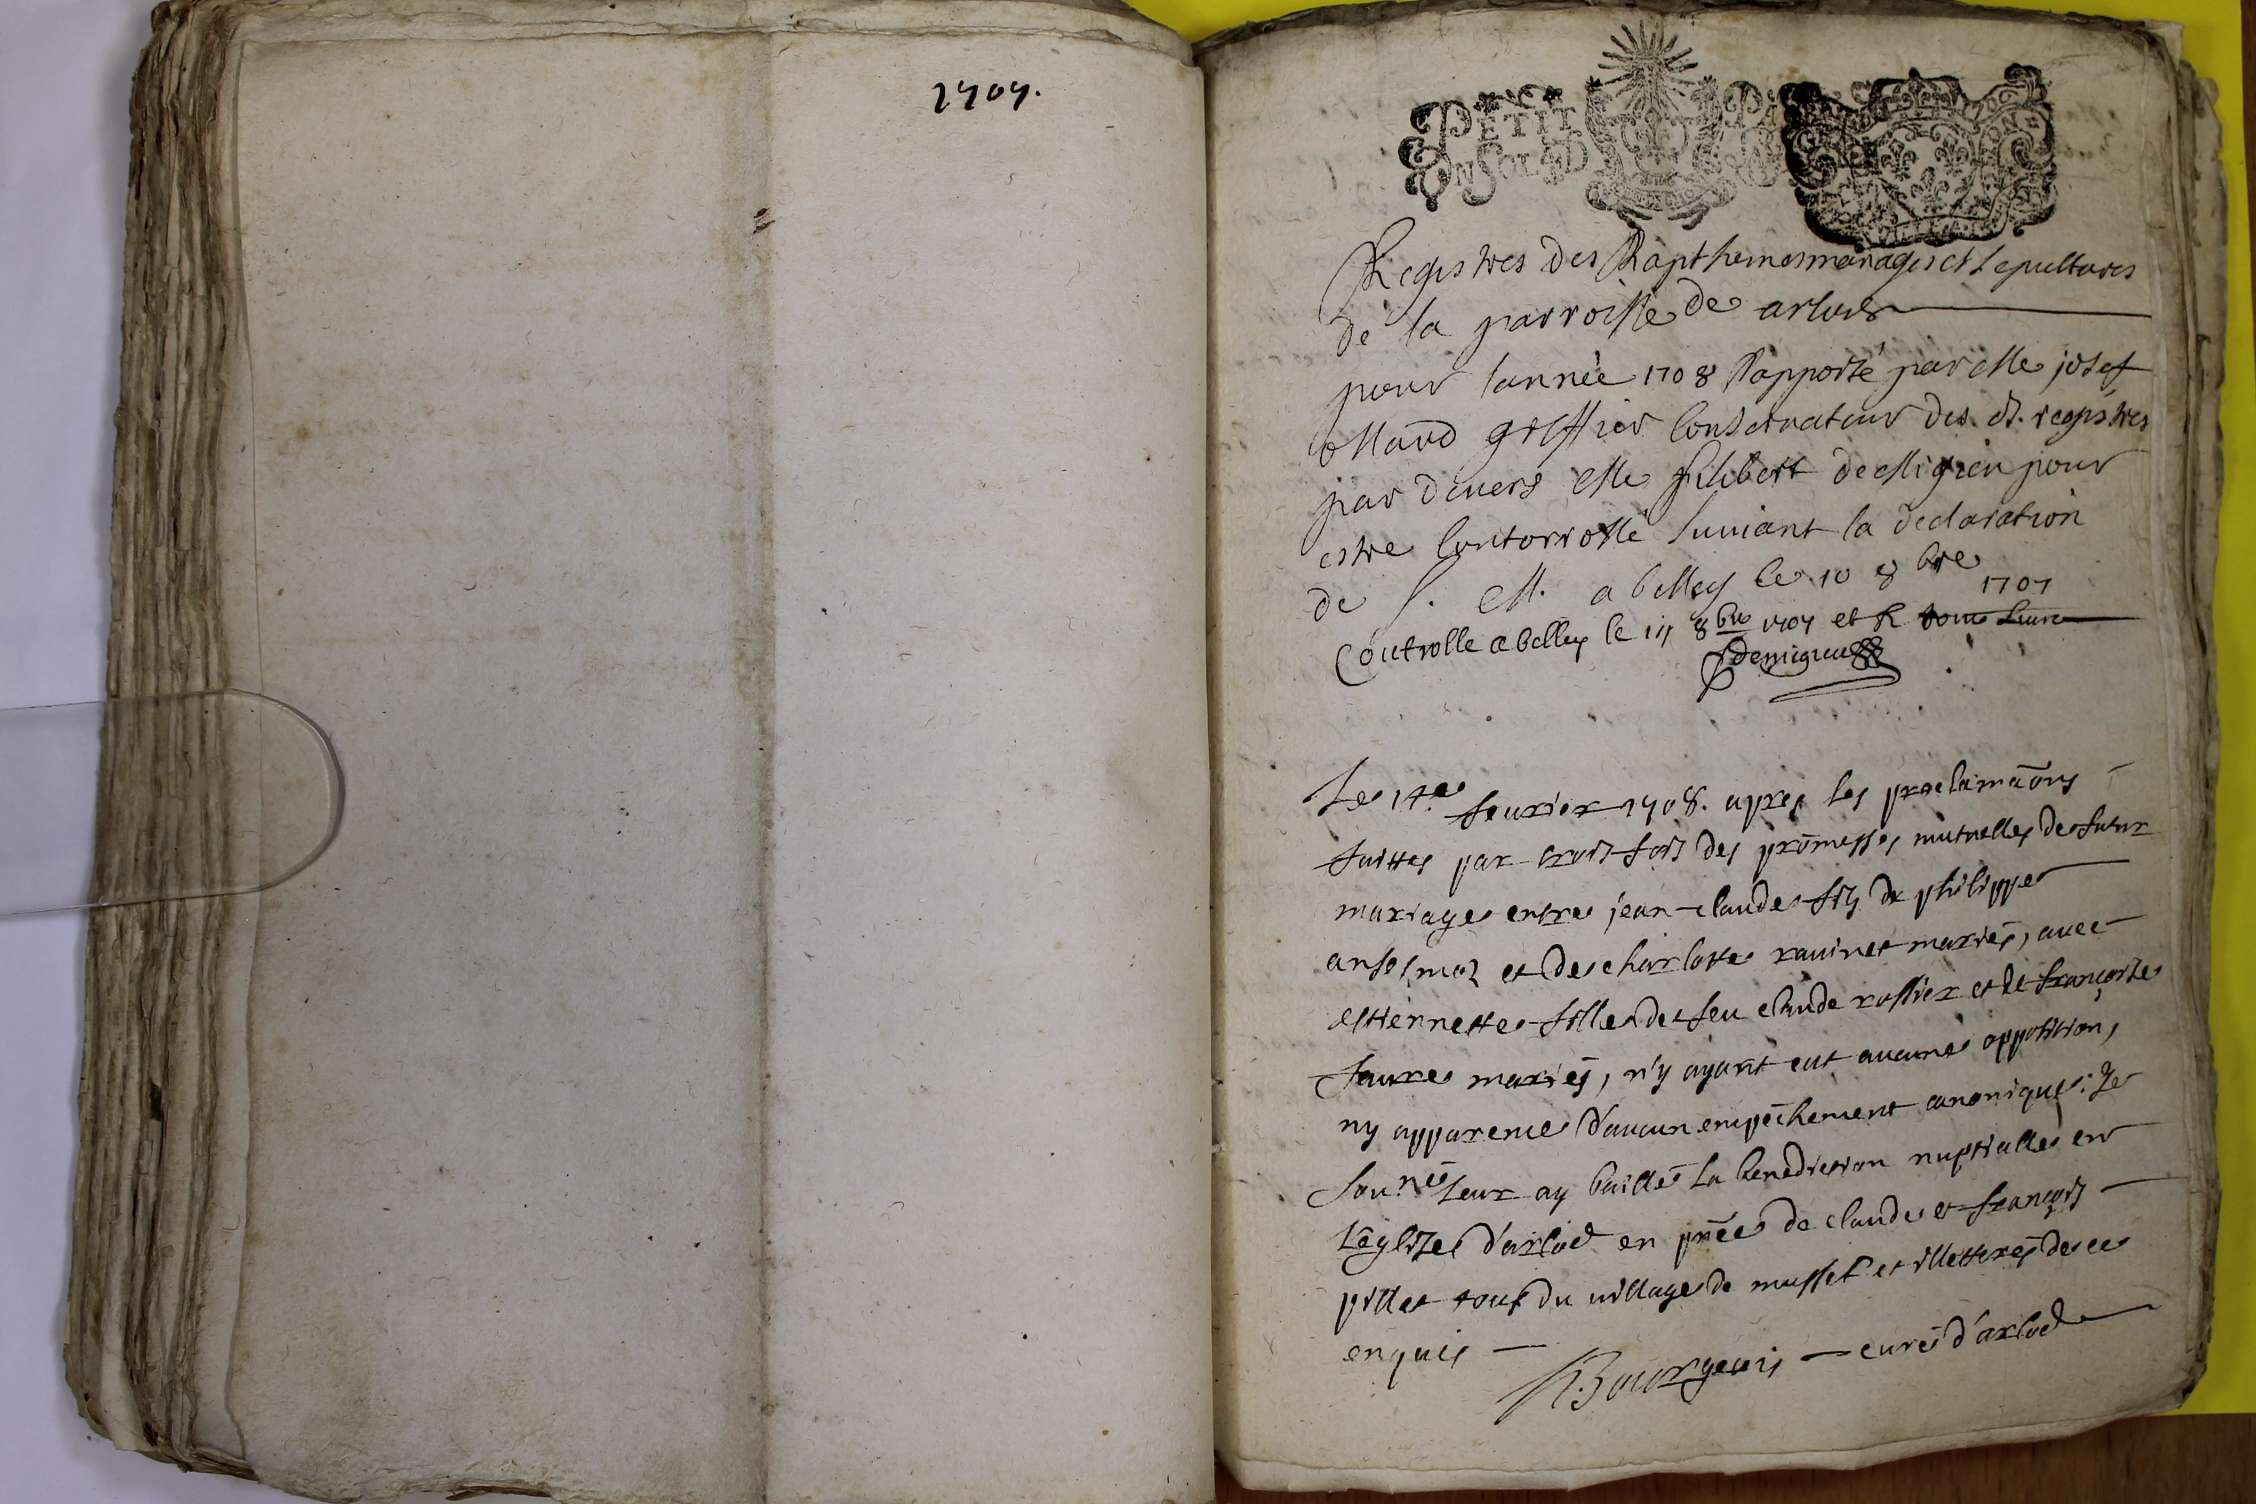 1707.
PETIT PA
UN SOL 4D
Registres des Bapthemes mariages et sepultures
de la parroisse de arlod
pour lannèe 1708 Rapporté par Me josef
Mard greffier Conservateur des dt. registres
par devers Me filibert de Migieu pour
estre Contorrollé suviant la declaration
de S. M. a belley le 10 8bre 1707
Controlle a belley le 17 8bre 1707 et R
Demigieu
Le 14.e feurier 1708. apres les proclimaõns
faittes par trois fois des promesses mutuelles de futur
mariage entre jean-claude fils de philippe
anselmoz et de charlotte rauinet mariés, auec
estiennette fille de feu claude rossier et de françoise
faure mariés, n'y ayant eut aucune oppotition,
ny apparence d'aucun empéchement canonique; Je
sou.né leur ay baillé la benediction nuptialle en
l'eglize d'arlod en pñce de claude et françois
pillet tous du uillage de mussel et illetterés de ce
enquis
R. Bourgeois curé d'arlod